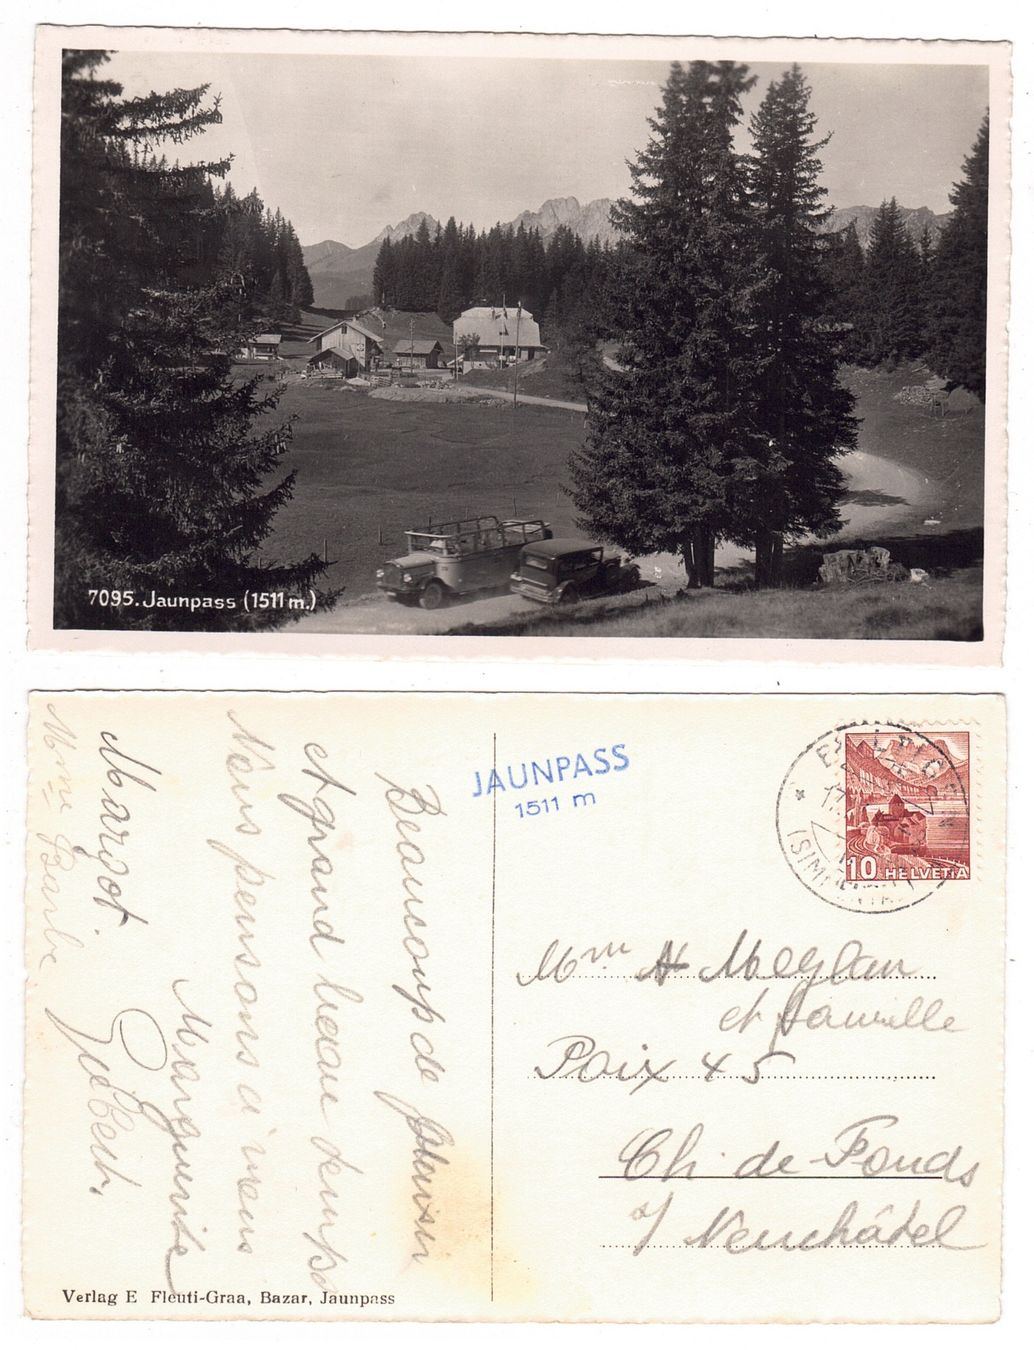 7095. Jaunpass (1511 m.)
JAUNPASS
1511 m
10 HELVETIA
(SIMMENTAL)
Mme A Meylan
et famille
Paix 45
Ch. de-Fonds
s/ Neuchâtel
Beaucoup de plaisir
et grand beau temps
Nous pensons a vous
Marguerite
Margot. Gilbert.
Mme Barbe
Verlag E Fleuti-Graa, Bazar, Jaunpass